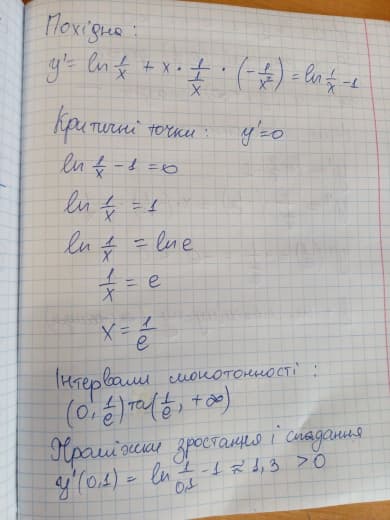 Похідна:
y' = ln 1/x + x · 1/(1/x) · (-1/x²) = ln 1/x - 1
Критичні точки: y'=0
ln 1/x - 1 = 0
ln 1/x = 1
ln 1/x = ln e
1/x = e
x = 1/e
Інтервали монотонності:
(0, 1/e) та (1/e, +∞)
Проміжки зростання і спадання
y'(0,1) = ln 1/0,1 - 1 ≈ 1,3 > 0